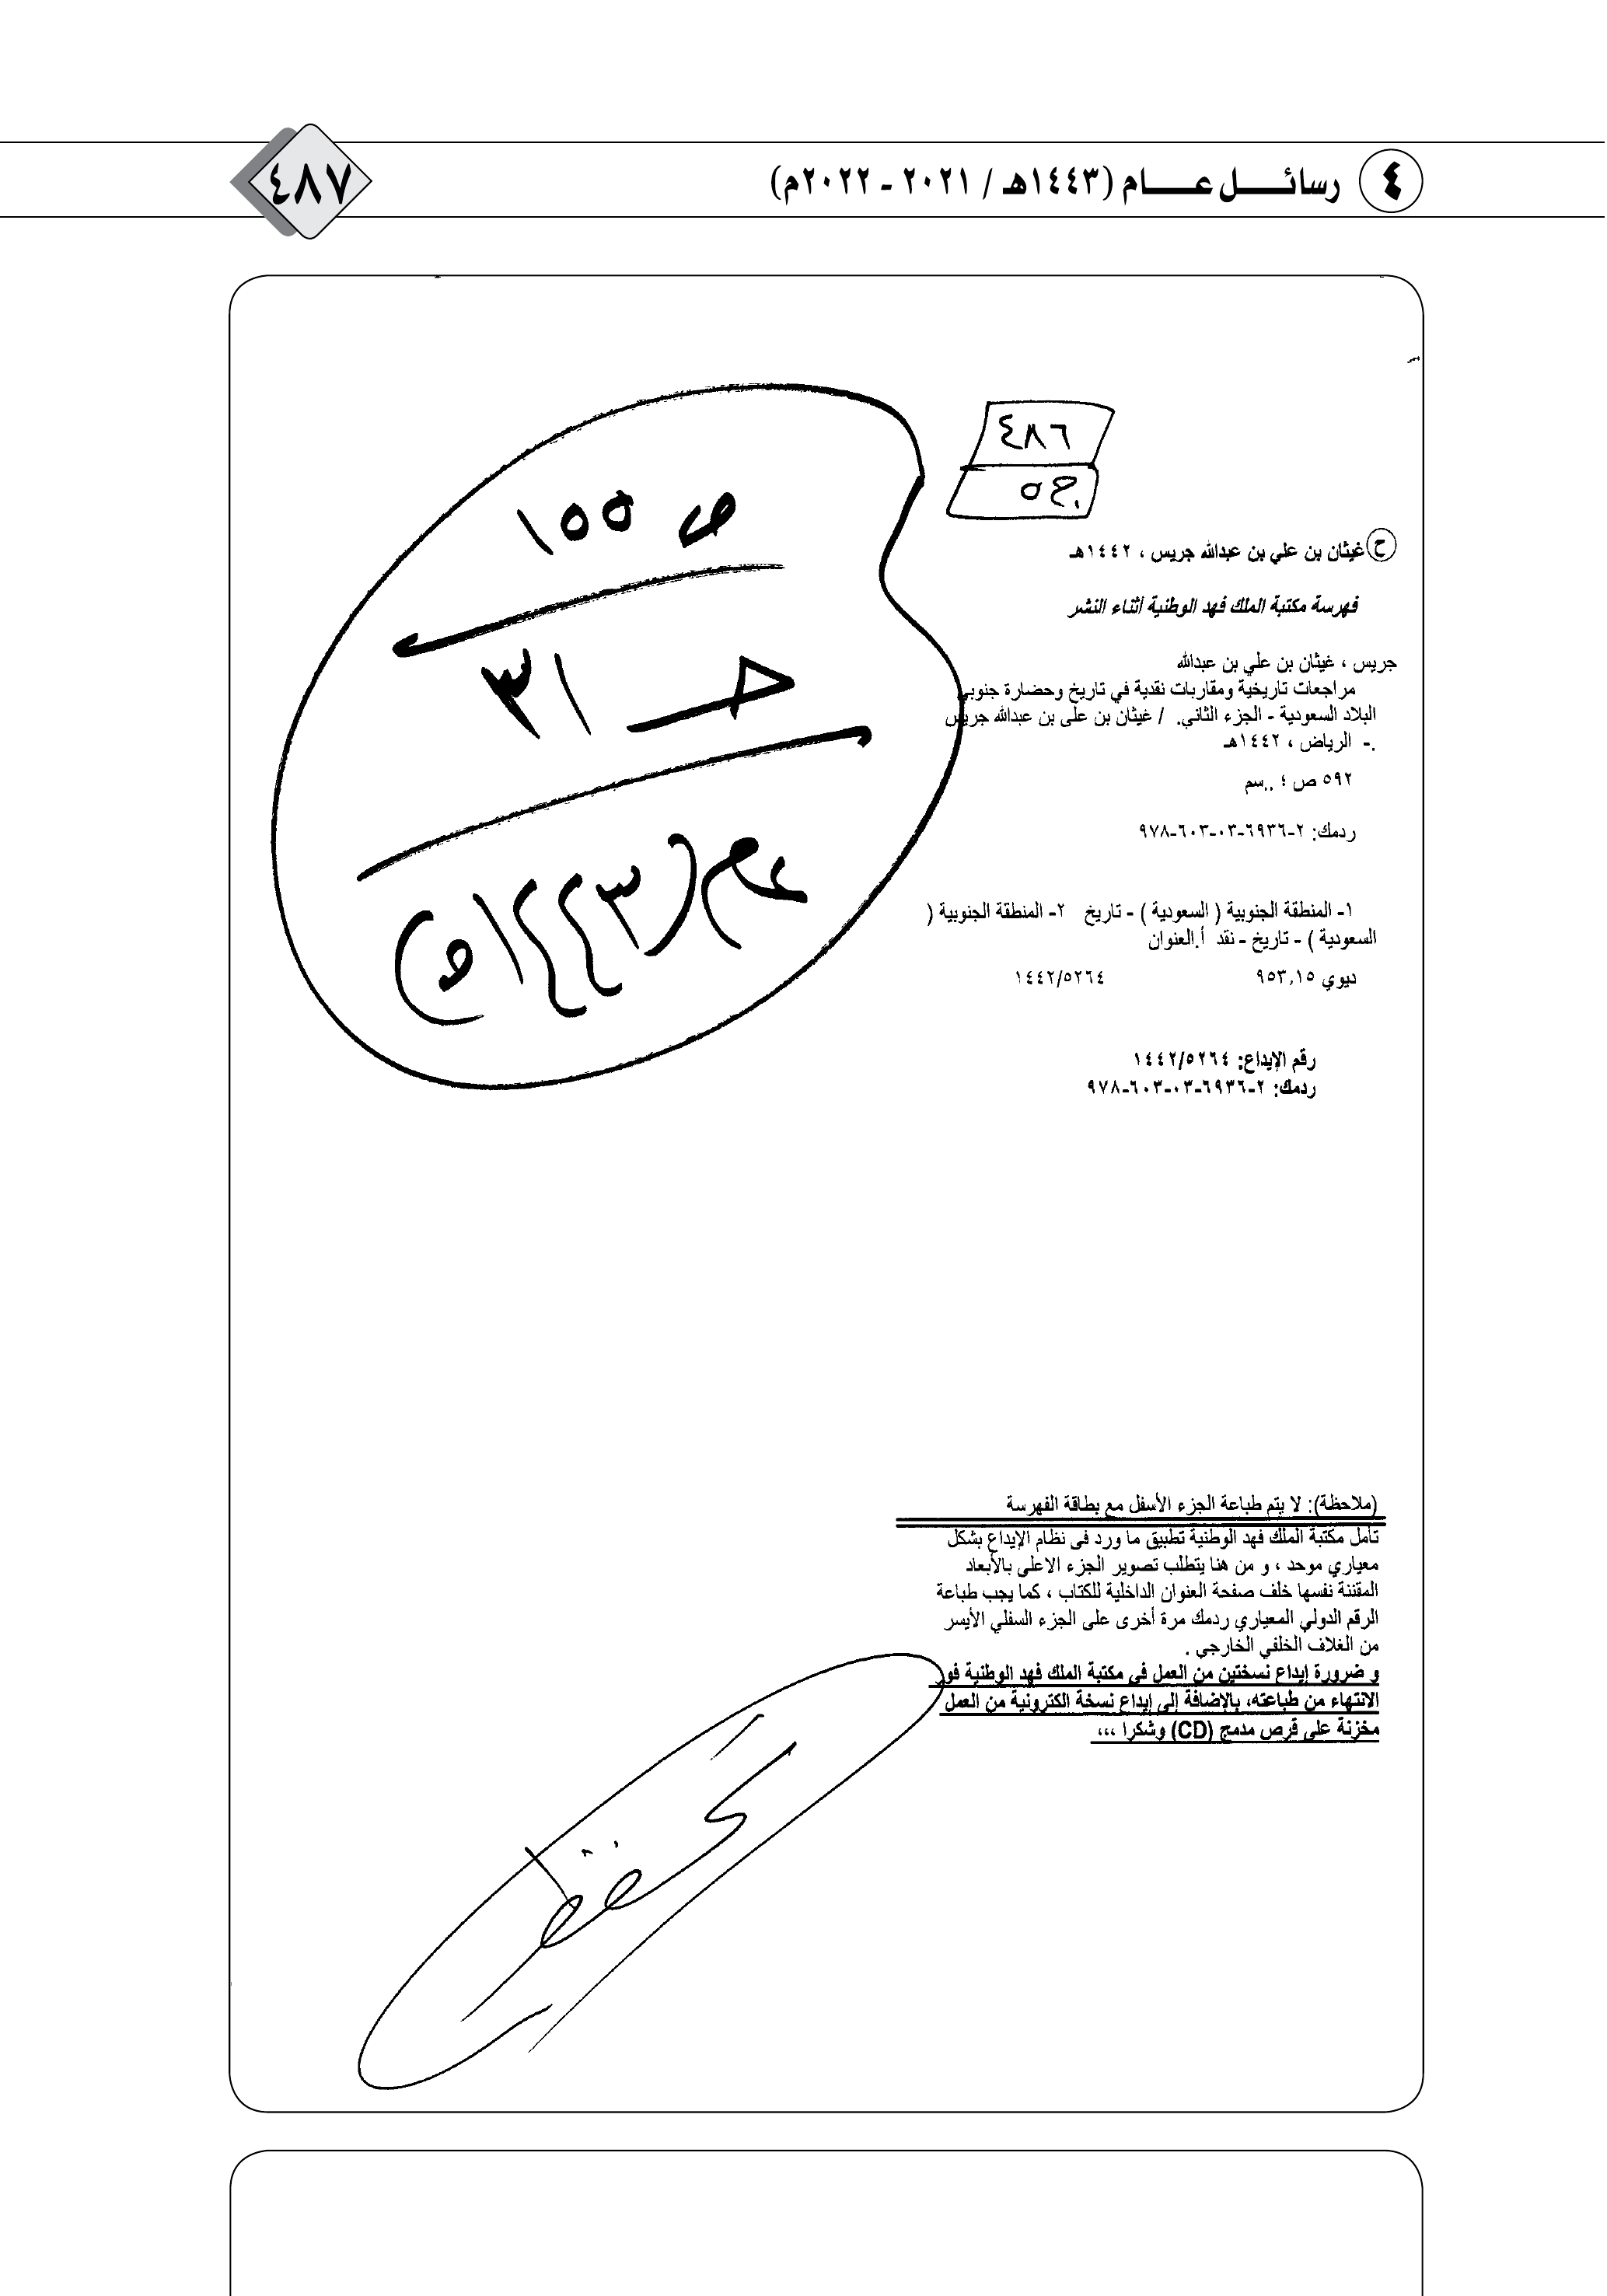 ٤ رسائــــل عــــام (١٤٤٣هـ / ٢٠٢١ - ٢٠٢٢م)
٤٨٧
٤٨٦
ج٥
ص ١٥٥
حـ ٣١
عام (١٤٤٣هـ)
ح غيثان بن علي بن عبدالله جريس ، ١٤٤٢هـ
فهرسة مكتبة الملك فهد الوطنية أثناء النشر
جريس ، غيثان بن علي بن عبدالله
مراجعات تاريخية ومقاربات نقدية في تاريخ وحضارة جنوبي
البلاد السعودية - الجزء الثاني. / غيثان بن علي بن عبدالله جريس
.- الرياض ، ١٤٤٢هـ
٥٩٢ ص ؛ ..سم
ردمك: ٢-٦٩٣٦-٠٣-٦٠٣-٩٧٨
١- المنطقة الجنوبية ( السعودية ) - تاريخ ٢- المنطقة الجنوبية (
السعودية ) - تاريخ - نقد أ.العنوان
ديوي ٩٥٣,١٥ ١٤٤٢/٥٢٦٤
رقم الإيداع: ١٤٤٢/٥٢٦٤
ردمك: ٢-٦٩٣٦-٠٣-٦٠٣-٩٧٨
(ملاحظة): لا يتم طباعة الجزء الأسفل مع بطاقة الفهرسة
تأمل مكتبة الملك فهد الوطنية تطبيق ما ورد في نظام الإيداع بشكل
معياري موحد ، و من هنا يتطلب تصوير الجزء الاعلى بالأبعاد
المقننة نفسها خلف صفحة العنوان الداخلية للكتاب ، كما يجب طباعة
الرقم الدولي المعياري ردمك مرة أخرى على الجزء السفلي الأيسر
من الغلاف الخلفي الخارجي .
و ضرورة إيداع نسختين من العمل في مكتبة الملك فهد الوطنية فور
الانتهاء من طباعته، بالإضافة إلى إيداع نسخة الكترونية من العمل
مخزنة على قرص مدمج (CD) وشكرا ،،،